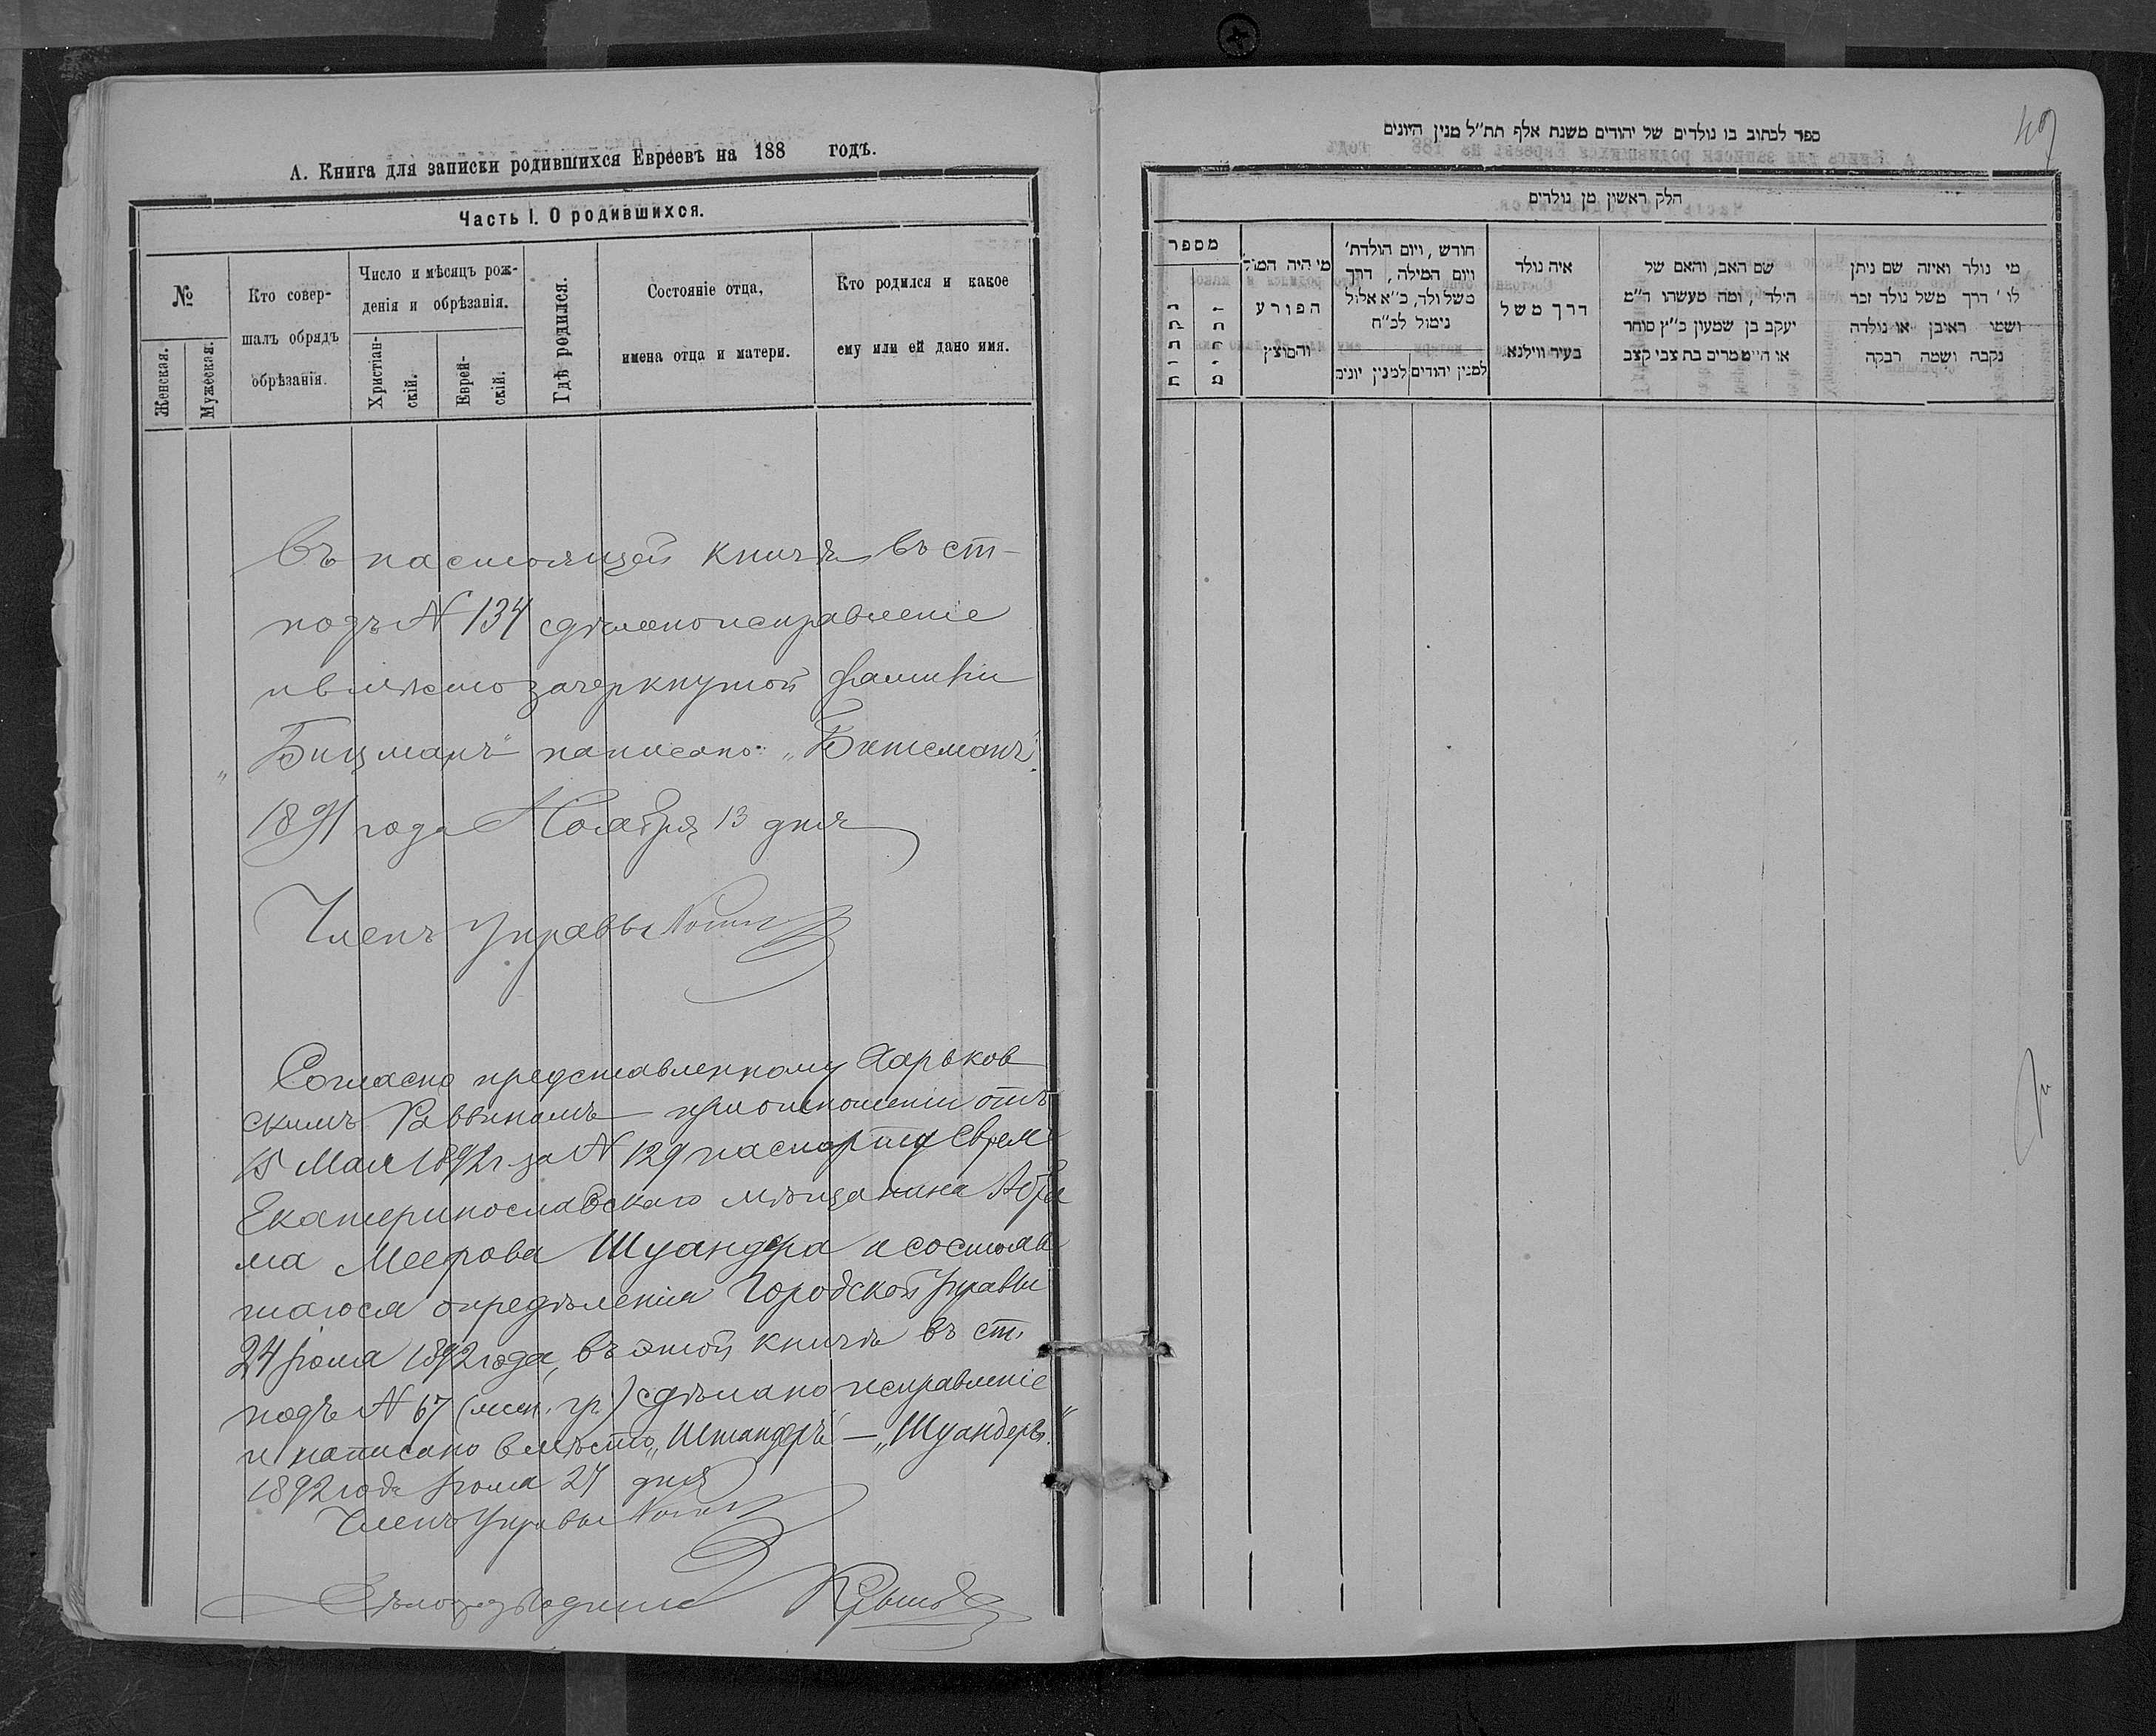 А. Книга для записки родившихся Евреевъ на 188 годъ.
Часть I. О родившихся.
№
Женская.
Мужеская.
Кто совер-
шалъ обрядъ
обрѣзанія.
Число и мѣсяцъ рож-
денія и обрѣзанія.
Христіан-
скій.
Еврей-
скій.
Гдѣ родился.
Состояніе отца,
имена отца и матери.
Кто родился и какое
ему или ей дано имя.
Въ настоящей книгѣ въ ст-
подъ N 134 сдѣлано исправленіе
и вмѣсто зачеркнутой фамиліи
„Бицманъ“ написано: „Битсманъ“.
1891 года Ноября 13 дня
Членъ Управы
Согласно представленному Харьков
скимъ Раввиномъ при отношеніи отъ
15 Мая 1892 г за N 129 паспорту Еврея
Екатеринославскаго мѣщанина Абра
ма Меерова Шуандера и состояв
шагося опредѣленія Городской Управы
24 Іюля 1892 года, въ этой книгѣ въ ст.
подъ N 67 (жен. гр.) сдѣлано исправленіе
и написано вмѣсто „Штандеръ“ – „Шуандеръ.“
1892 года Іюля 24 дня
Членъ Управы
Дѣлопроизводитель
ספר לכתוב בו נולדים של יהודים משנת אלף תת״ל מנין היונים
חלק ראשון מן נולדים
מספר
נקבות
זכרים
מי היה המוהל
הפורע
והמוצץ
חודש, ויום הולדת׳
ויום המילה, דרך
משל ולד, כ״א אלול
נימול לכ״ח
למנין יונים
למנין יהודים
איה נולד
דרך משל
בעיר ווילנא
שם האב, והאם של
הילד, ומה מעשהו ד״מ
יעקב בן שמעון כ״ץ סוחר
או היים מרים בת צבי קצב
מי נולד ואיזה שם ניתן
לו ׳ דרך משל נולד זכר
ושמו ראיבן או נולדה
נקבה ושמה רבקה